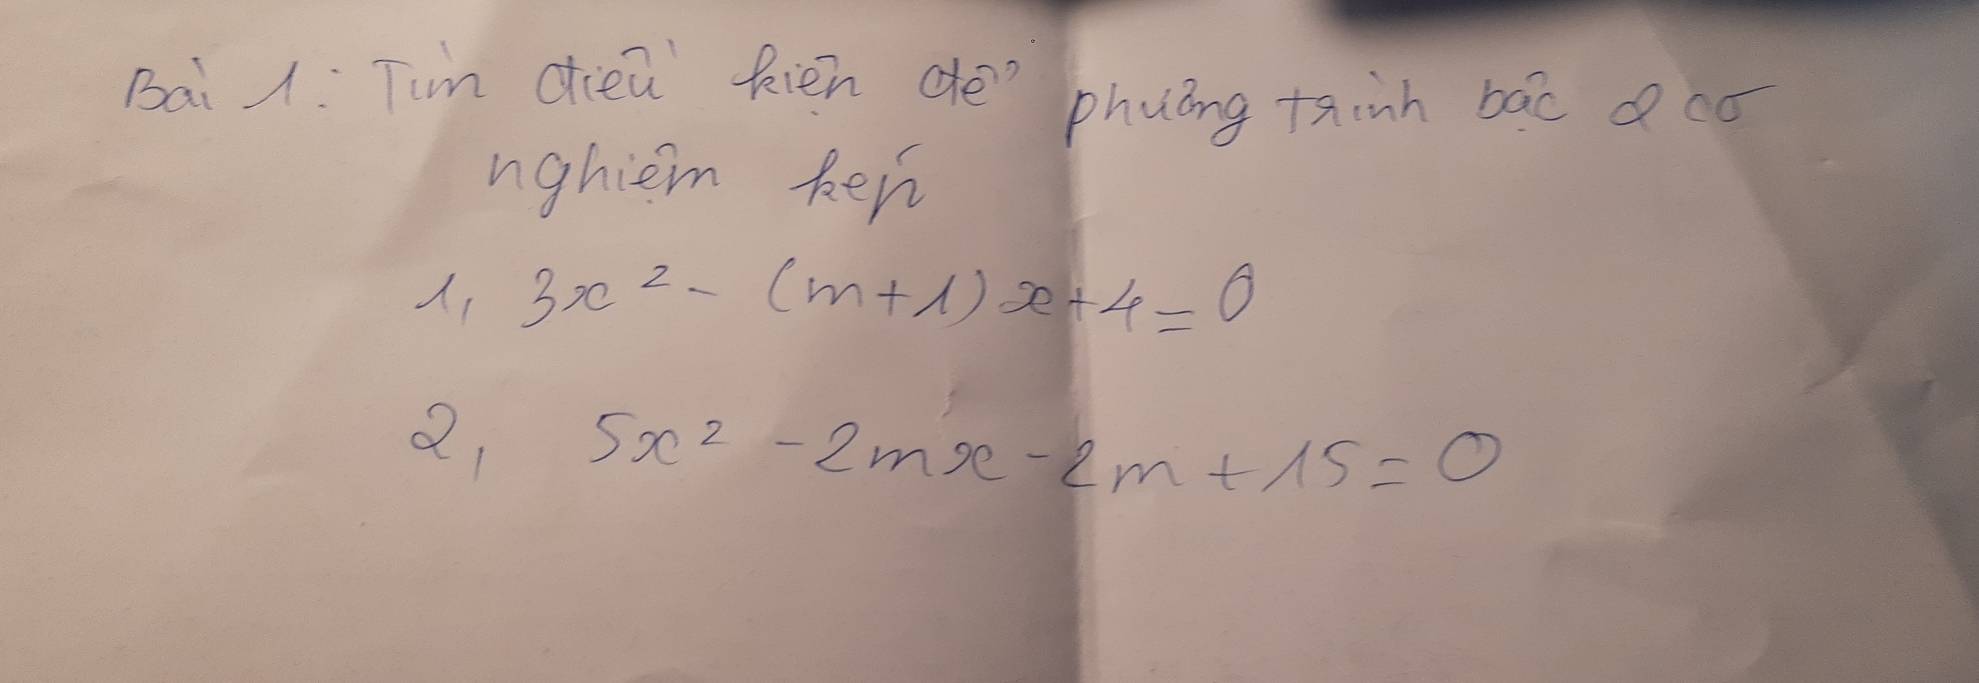 Bài 1: Tìm điều kiện để phương trình bậc 2 có
nghiệm kép
1, 3x² - (m+1)x+4=0
2, 5x² -2mx-2m+15=0